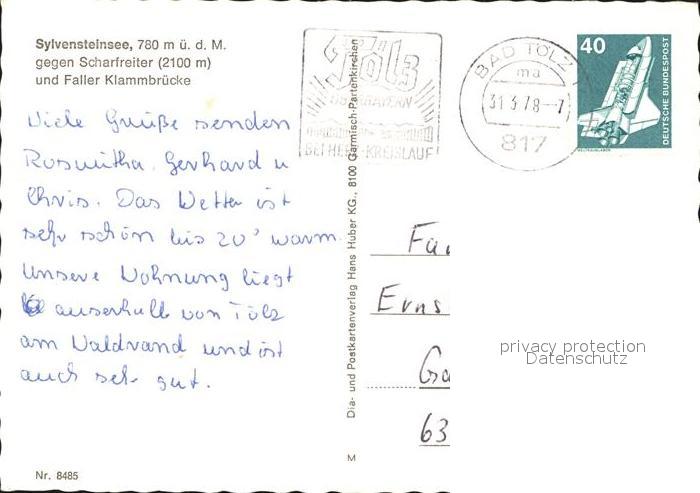 Sylvensteinsee, 780 m ü. d. M.
gegen Scharfreiter (2100 m)
und Faller Klammbrücke
Viele Grüße senden
Roswitha, Gerhard u
Chris. Das Wetter ist
sehr schön bis 20° warm.
Unsere Wohnung liegt
auserhalb von Tölz
am Waldrand und ist
auch sehr gut.
Nr. 8485
Dia- und Postkartenverlag Hans Huber KG., 8100 Garmisch-Partenkirchen
M
Tölz
OBERBAYERN
BEI HERZ-KREISLAUF
BAD TÖLZ 1
ma
31.3.78-7
817
40
DEUTSCHE BUNDESPOST
WELTRAUMLABOR
Fa
Erns
Ga
63
privacy protection
Datenschutz